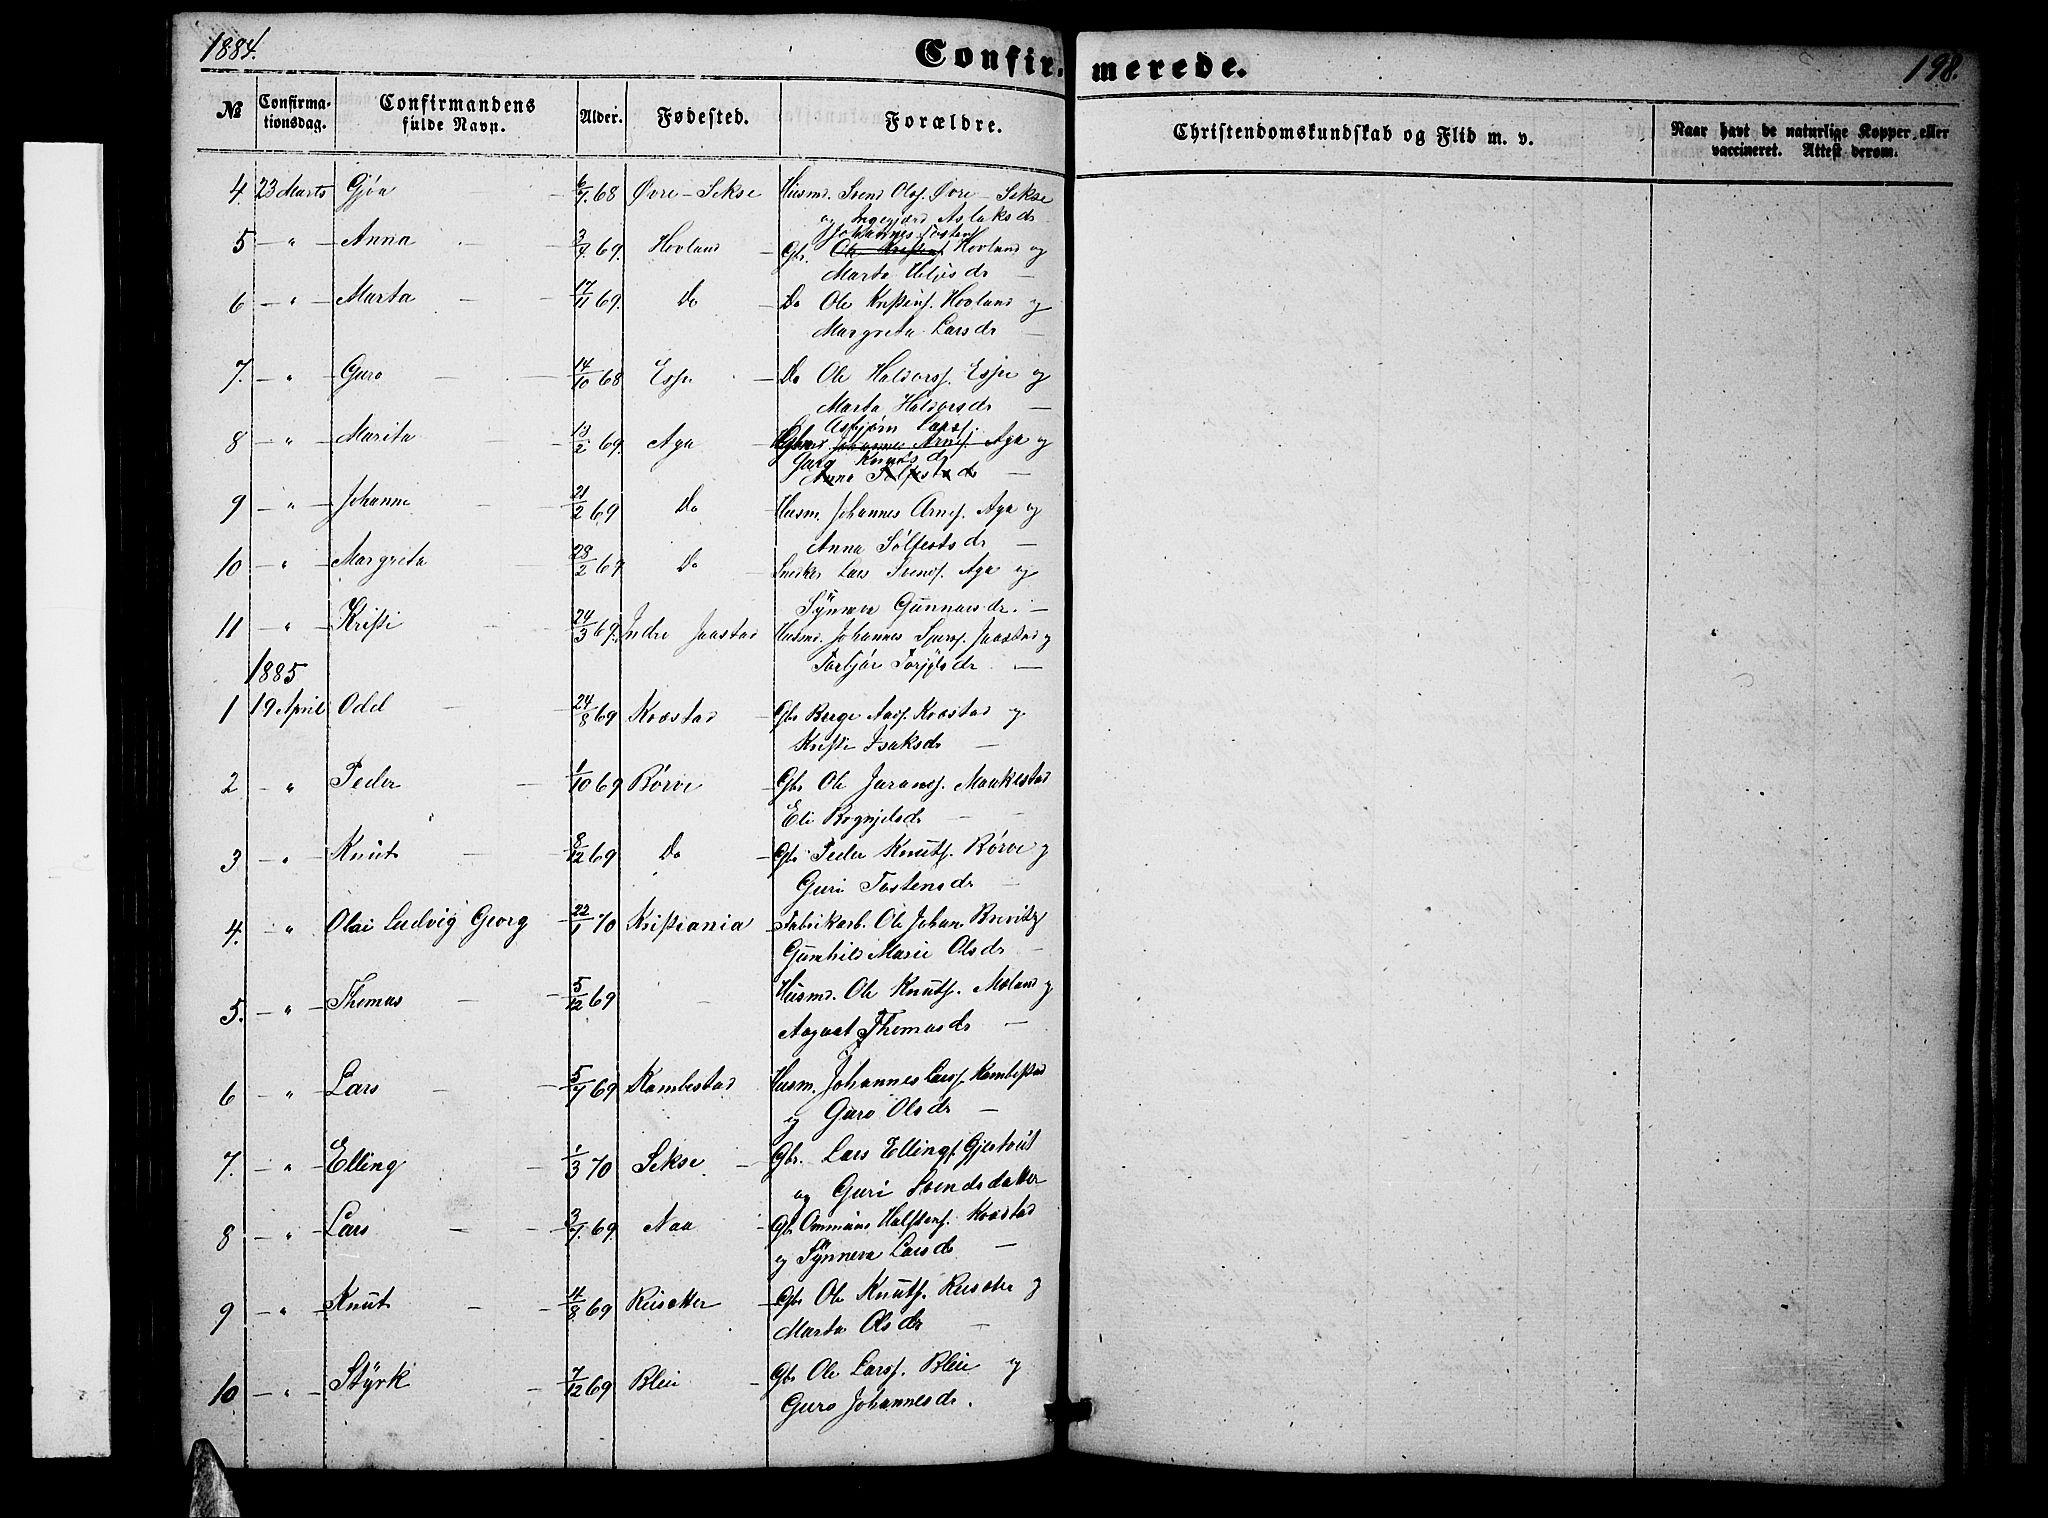 1884. Confirmerede. 198.
№ Confirmationsdag. Confirmandens fulde Navn. Alder. Fødested. Forældre. Christendomskundskab og Flid m. v. Naar havt de naturlige Kopper eller vaccineret. Attest derom.
4. 23 Marts Gjøa 6/7 68 Øvre-Sekse Husmd. Svend Olsf. Øvre-Sekse
og Ingegjærd Aslaksdr
Johannes Tostens
5 — " — Anna 3/7 69. Hovland Gbr. Hovland og
Marta Helgesdr
6 — " — Marta 17/11 69. Do Do Ole Knstens. Hovland og
Margreta Larsdr
7. — " — Guro 14/10 68 Espe Do Ole Haldorsf. Espe og
Marta Haldorsdr
Asbjørn Larsf.
8 — " — Marita 13/2 69. Aga Johannes Arnesf. Aga og
Knutsdr
Anna Solfestsdr
9 — " — Johanne 21/2 69 Do Husm. Johannes Arnesf. Aga og
Anna Solfestsdr
10 — " — Margreta 28/2 69 Do Snedker Lars Svendsf. Aga og
Synneva Gunnarsdr.
11 — " — Kristi 24/3 69. Indre Jaastad Husmd. Johannes Sjursf. Jaastad og
Torbjør Torgilsdr
1885
1 19 April Odd 24/8 69 Kvæstad Gbr Berge Aadsf. Kvæstad og
Kristi Isaksdr
2 — " — Peder 1/10 69 Børve Gbr Ole Jøransf. Maakestad
Eli Rognjelsdr
3 — " — Knut 8/12 69 Do Gbr Peder Knutsf. Børve og
Guri Tostensdr
4. — " — Olai Ludvig Georg 22/1 70 Kristiania Fabrikarb. Ole Johan
Gunhild Marie Olsdr
5. — " — Thomas 5/12 69 Husmd. Ole Knutsf. Mæland og
Aagaat Thomasdr
6 — " — Lars 5/7 69 Kambestad Husm. Johannes Larsf. Kambestad
og Guro Olsdr
7. — " — Elling 1/3 70 Sekse Gbr. Lars Ellingsf.
og Guri Svendsdatter
8 — " — Lars 3/7 69. Naa Gbr Ommund Halstensf. Kvæstad
og Synneva Larsdr
9 — " — Knut 4/8 69 Reisæter Gbr Ole Knutsf. Reisæter og
Marta Olsdr
10 — " — Styrk 7/12 69 Bleie Gbr Ole Larsf. Bleie og
Guro Johannesdr.